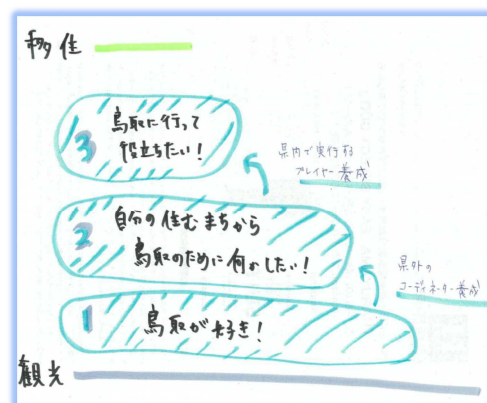 移住
3
鳥取に行って
役立ちたい!
県内で実行する
プレイヤー養成
2
自分の住むまちから
鳥取のために何かしたい!
県外の
コーディネーター養成
1
鳥取が好き!
観光